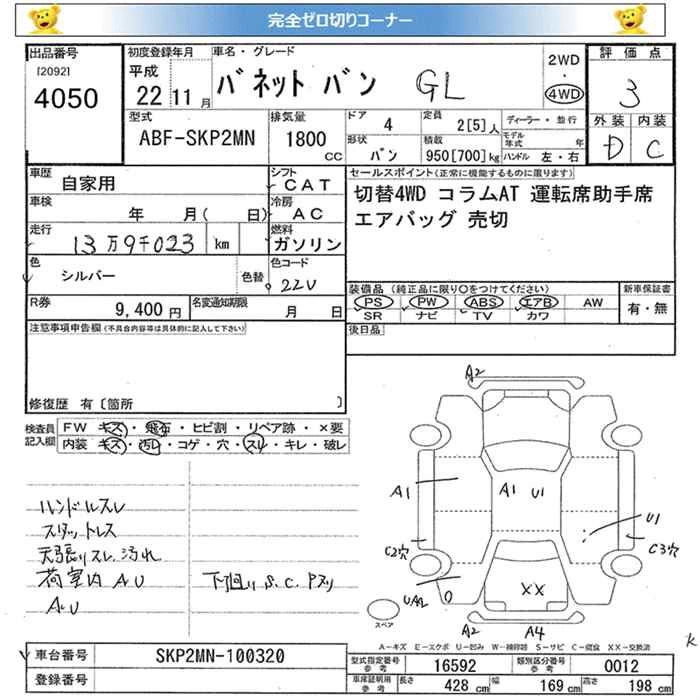 完全ゼロ切りコーナー
出品番号
(20921)
4050
初度登録年月
平成
22 11 月
車名・グレード
バネット バン GL
2WD
・
4WD
評価点
3
外装 内装
D C
型式
ABF-SKP2MN
排気量
1800
CC
ドア 4
形状 バン
定員 2[5]人
積載 950[700]kg
ディーラー・並行
モデル年式 年
ハンドル 左・右
車歴 自家用
シフト CAT
車検 年 月( 日)
冷房 AC
走行 13万9千023 km
燃料 ガソリン
色 シルバー 色替
色コード 22V
R券 9,400 円
名変通知期限 月 日
セールスポイント(正常に機能するものに限ります)
切替4WD コラムAT 運転席助手席
エアバッグ 売切
装備品(純正品に限り〇をつけてください)
PS PW ABS エアB AW
SR ナビ TV カワ
新車保証書
有・無
後日品
注意事項申告欄(不具合内容等は具体的に記入して下さい)
修復歴 有〔箇所 〕
検査員
記入欄
FW キズ・飛石・ヒビ割・リペア跡・×要
内装 キズ・汚レ・コゲ・穴・スレ・キレ・破レ
ハンドルスレ
スタットレス
天張りスレ 汚れ
荷室内 AU
AU
下廻り S.C.Pヌリ
A2
A1
A1 U1
U1
C2穴
C3穴
UA2
XX
A2
A4
スペア
A-キズ E-エクボ U-凹み W-補修跡 S-サビ C-腐食 XX-交換済
K
車台番号 SKP2MN-100320
登録番号
型式指定番号 参考 16592
類別区分番号 参考 0012
車庫証明用 参考 長さ 428 cm 幅 169 cm 高さ 198 cm